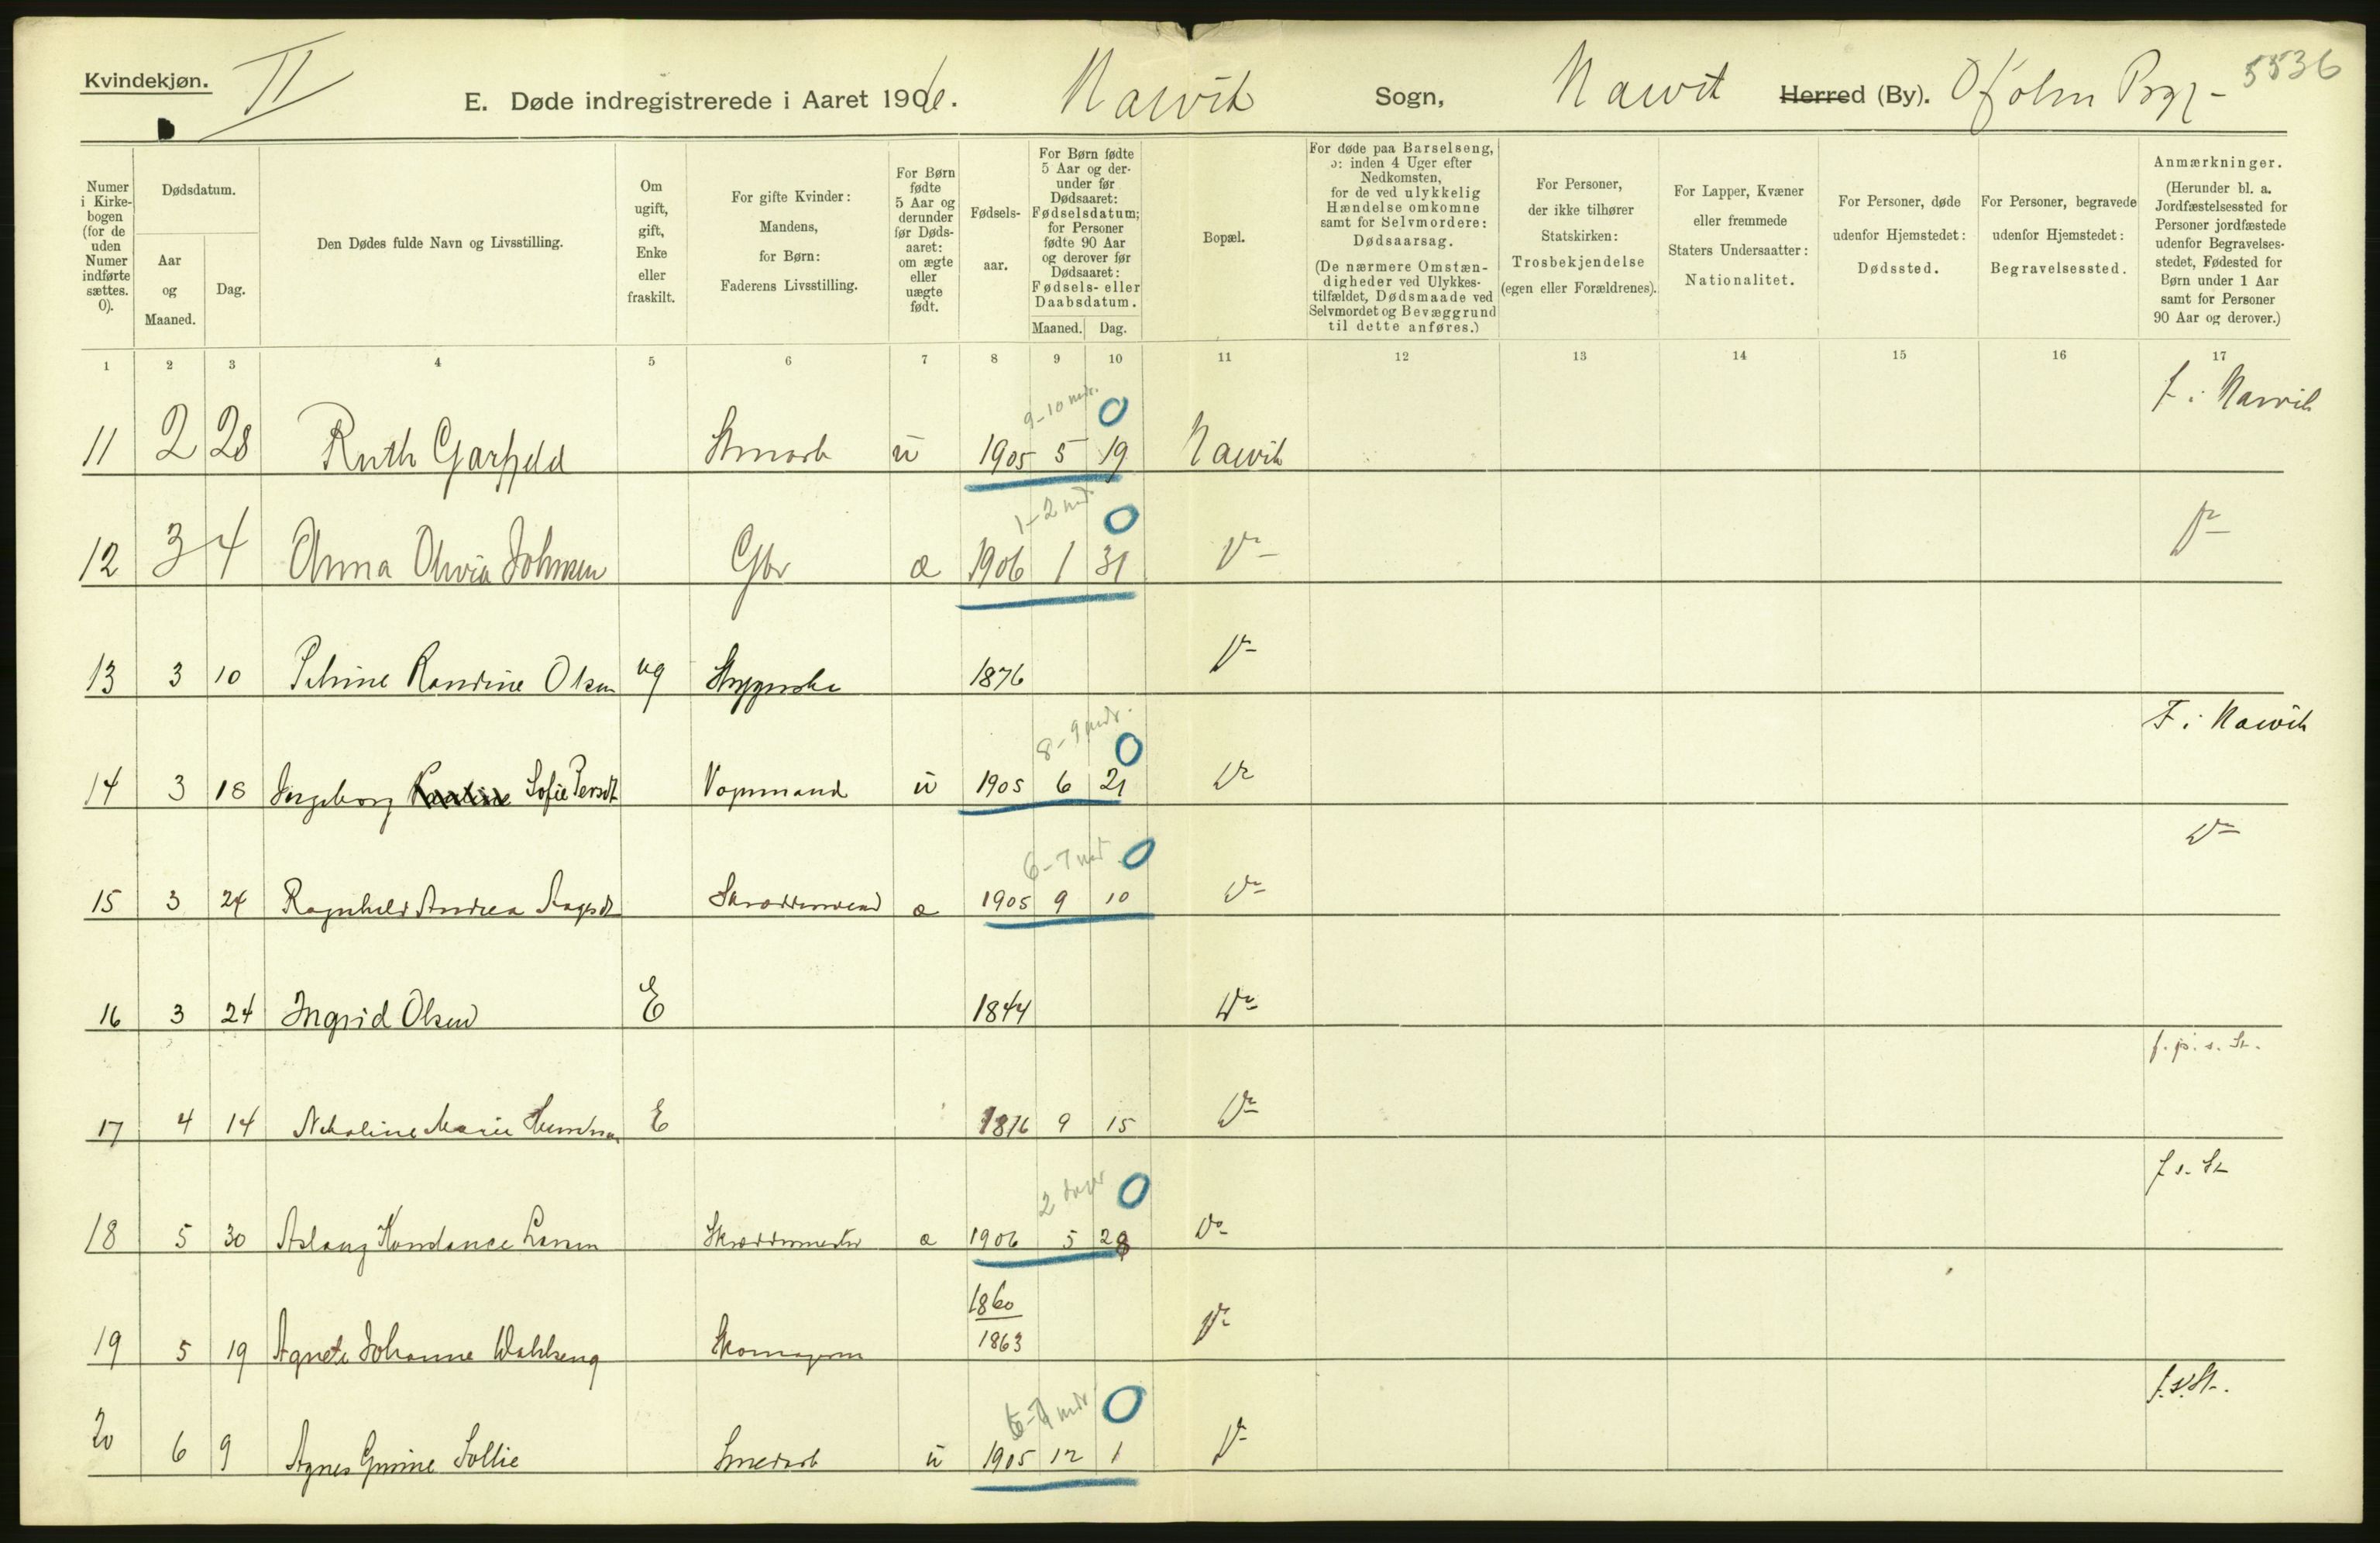 Kvindekjøn. II
E. Døde indregistrerede i Aaret 1906. Narvik Sogn, Narvik Herred (By). Ofoten 5536
Numer i Kirkebogen (for de uden Numer indførte sættes. 0).
Dødsdatum.
Aar og Maaned.
Dag.
Den Dødes fulde Navn og Livsstilling.
Om ugift, gift, Enke eller fraskilt.
For gifte Kvinder: Mandens, for Børn: Faderens Livsstilling.
For Børn fødte 5 Aar og derunder før Dødsaaret: om ægte eller uægte født.
Fødselsaar.
For Børn fødte 5 Aar og derunder før Dødsaaret: Fødselsdatum; for Personer fødte 90 Aar og derover før Dødsaaret: Fødsels- eller Daabsdatum.
Maaned. Dag.
Bopæl.
For døde paa Barselseng, ɔ: inden 4 Uger efter Nedkomsten, for de ved ulykkelig Hændelse omkomne samt for Selvmordere: Dødsaarsag.
(De nærmere Omstændigheder ved Ulykkestilfældet, Dødsmaade ved Selvmordet og Bevæggrund til dette anføres.)
For Personer, der ikke tilhører Statskirken: Trosbekjendelse (egen eller Forældrenes).
For Lapper, Kvæner eller fremmede Staters Undersaatter: Nationalitet.
For Personer, døde udenfor Hjemstedet: Dødssted.
For Personer, begravede udenfor Hjemstedet: Begravelsessted.
Anmærkninger.
(Herunder bl. a. Jordfæstelsessted for Personer jordfæstede udenfor Begravelsesstedet, Fødested for Børn under 1 Aar samt for Personer 90 Aar og derover.)
1 2 3 4 5 6 7 8 9 10 11 12 13 14 15 16 17
9-10 mdr. 0 f. i Narvik
11 2 28 Ruth Garfjeld u 1905 5 19 Narvik
1-2 md 0
12 3 4 Anna Olivia Johnsen Gbr æ 1906 1 31 Do
13 3 10 Petrine Randine Olsen ug 1876 Do
8-9 mdr. 0 F. i Narvik
14 3 18 Ingeborg Sofie Persdt Vognmand u 1905 6 21 Do
6-7 md 0 Do
15 3 24 Ragnhild Andrea æ 1905 9 10 Do
16 3 24 Ingrid Olsen E 1844 Do
f. p. s. St.
17 4 14 Nekoline Marie E 1816 9 15 Do
2 dage 0 f. s. St
18 5 30 Aslaug Konstance Larsen Skræddermester æ 1906 5 28 Do
1860
19 5 19 Agnete Johanne 1863 Do
6-7 mdr 0 f. s. St.
20 6 9 Agnes Sollie Smedarb u 1905 12 1 Do